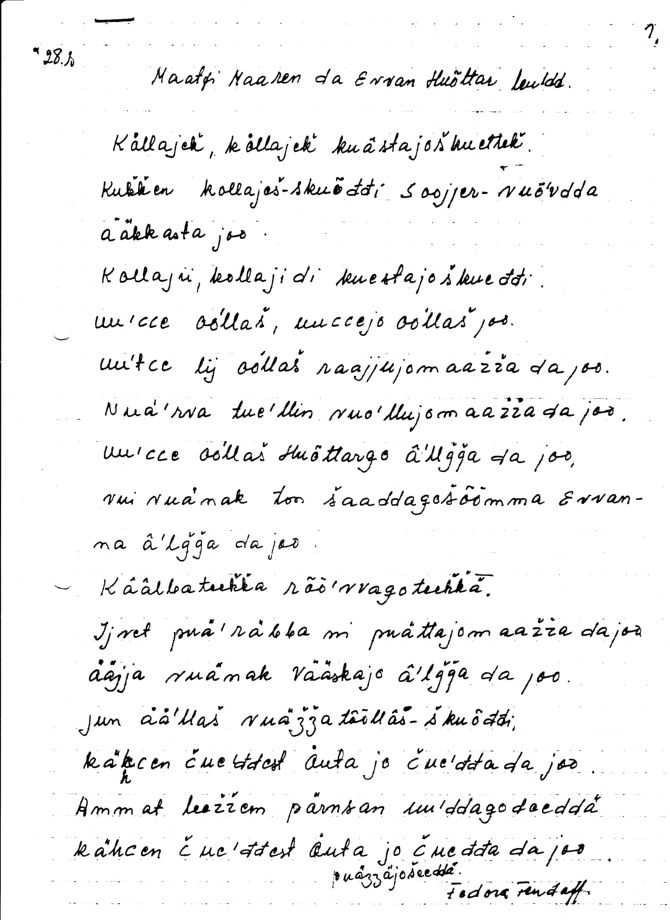 1.
"28.b
Maatŕi Maaren da Ervan Huõttar leuʹdd.
Kållajek̆, kållajek̆ kuâstajoškuettek̆.
Kuk̆k̆en kollajoš-škuõđđi soojjer-vuõʹvdda
ääkkasta joo.
Kollajii, kollajidi kuestajoškueđđi.
uuʹcce oóʹllaš, uuccejo oóʹllaš joo.
uuʹcce lij oóʹllaš raajjujomaažža da joo.
Nuäʹrva tueʹllin vuoʹllujomaažža da joo.
uuʹcce oóʹllaš Huõttargo âʹlğğa da joo,
vui vuänak ton šaaddagošõõmma Ervan-
na âʹlğğa da joo.
Kââlbateeǩǩa rõõʹvvagoteeǩǩä.
Ijvet puäʹräbba ni puättajomaažža da joo
ääjja vuänak Vääskajo âʹlğğa da joo.
Jun ääʹllaš vuäǯǯatõõllâš-škuõđđi,
kähcen čueʹđđest åuta jo čueʹđđa da joo.
Ammat leežžem pärnsan uuʹddagodeđđä
kähcen čueʹđđest åuta jo čueđđa da joo.
puäʒʒäjošeeđđä.
Fedora Fendoff.